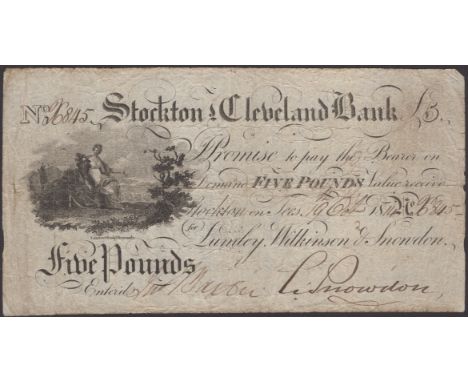 No. 845. Stockton & Cleveland Bank £5.
I Promise to pay the Bearer on
Demand FIVE POUNDS Value received
Stockton on Tees, 18 No. 845
for Lumley, Wilkinson & Snowdon.
Five Pounds
Enterd. C. Snowdon,